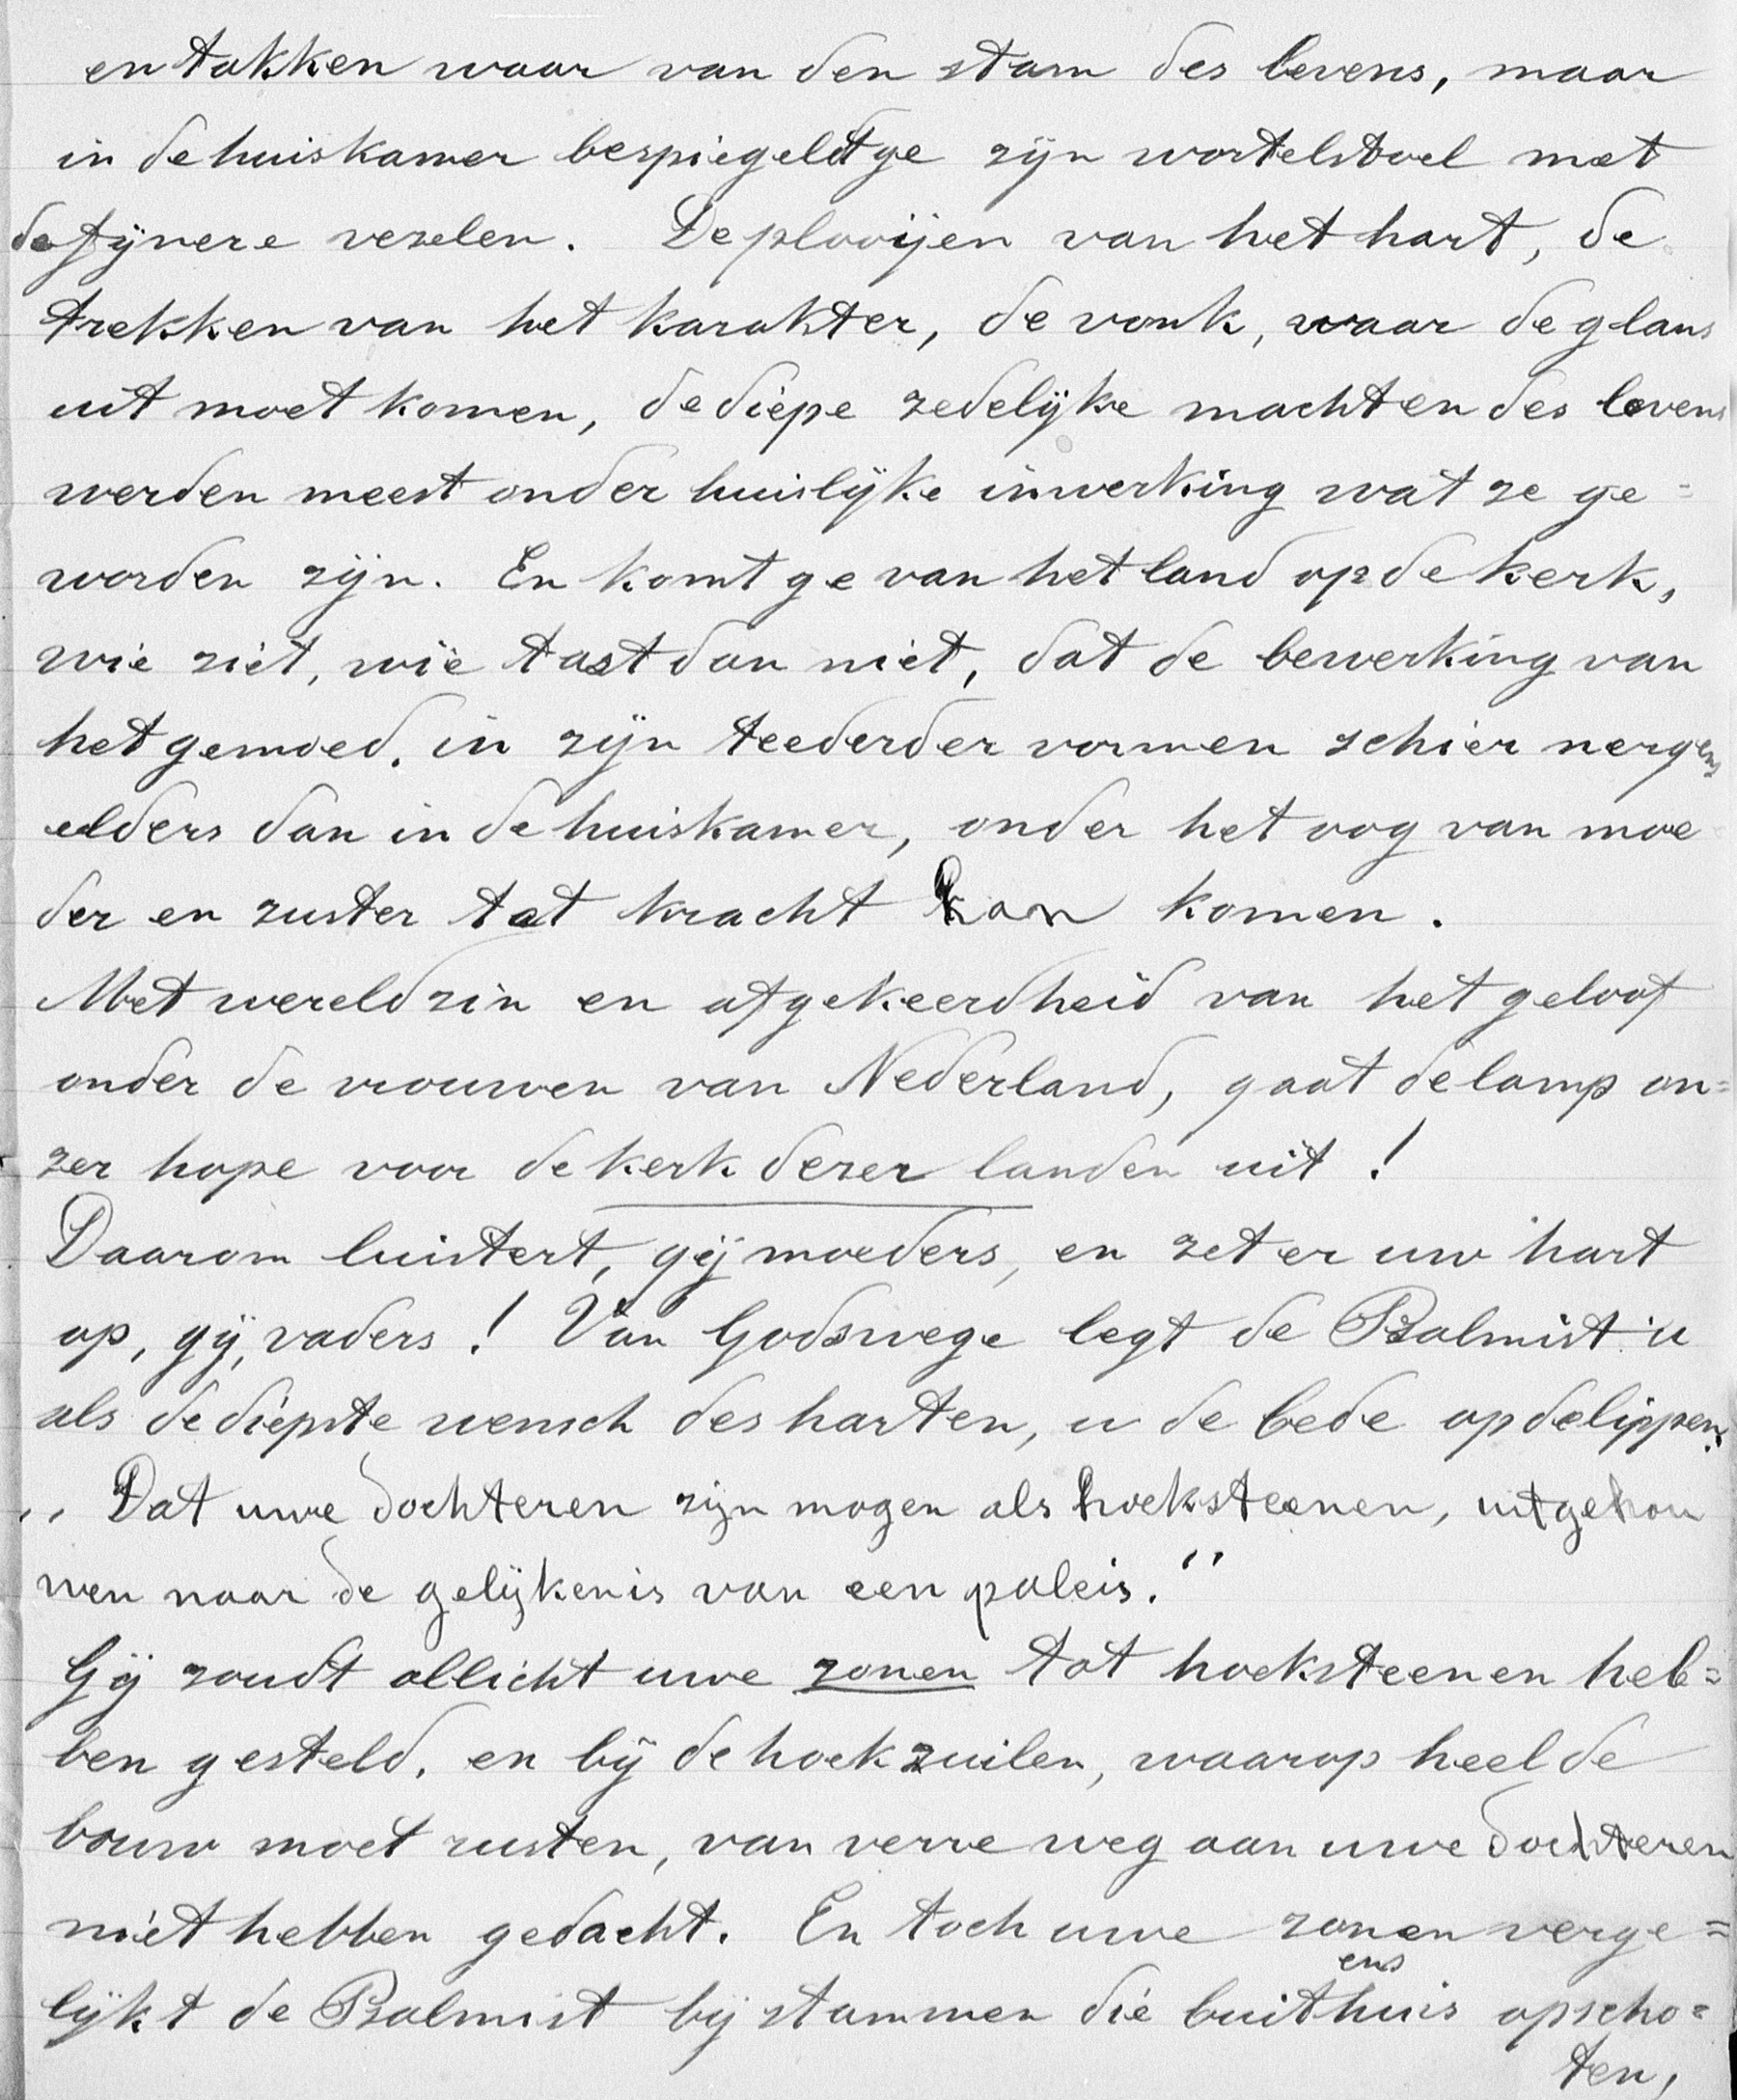 en takken waar van den stam des levens, maar
in de huiskamer bespiegeldt ge zijn wortelstoel met
de fijnere vezelen. De plooijen van het hart, de
trekken van het karakter, de vonk, waar de glans
uit moet komen, de diepe zedelijke machten des levens
werden meest onder huislijke inwerking wat ze ge=
worden zijn. En komt ge van het land op de kerk,
wie ziet, wie tast dan niet, dat de bewerking van
het gemoed, in zijn teederder vormen schier nergens
elders dan in de huiskamer, onder het oog van moe
der en zuster tot kracht kon komen.
Met wereldzin en afgekeerdheid van het geloof
onder de vrouwen van Nederland, gaat de lamp on=
zer hope voor de kerk dezer landen uit!
Daarom luistert, gij moeders, en zet er uw hart
op, gij, vaders! Van Godswege legt de Psalmist u
als de diepste wensch des harten, u de bede op de lippen.
,, Dat uwe dochteren zijn mogen als hoeksteenen, uitgehou
wen naar de gelijkenis van een paleis."
Gij zoudt allicht uwe zonen tot hoeksteenen heb=
ben gesteld, en bij de hoekzuilen, waarop heel de
bouw moet rusten, van verre weg aan uwe dochteren
niet hebben gedacht. En toch uwe zonen verge=
lijkt de Psalmist bij stammen die buitenshuis opscho=
ten,